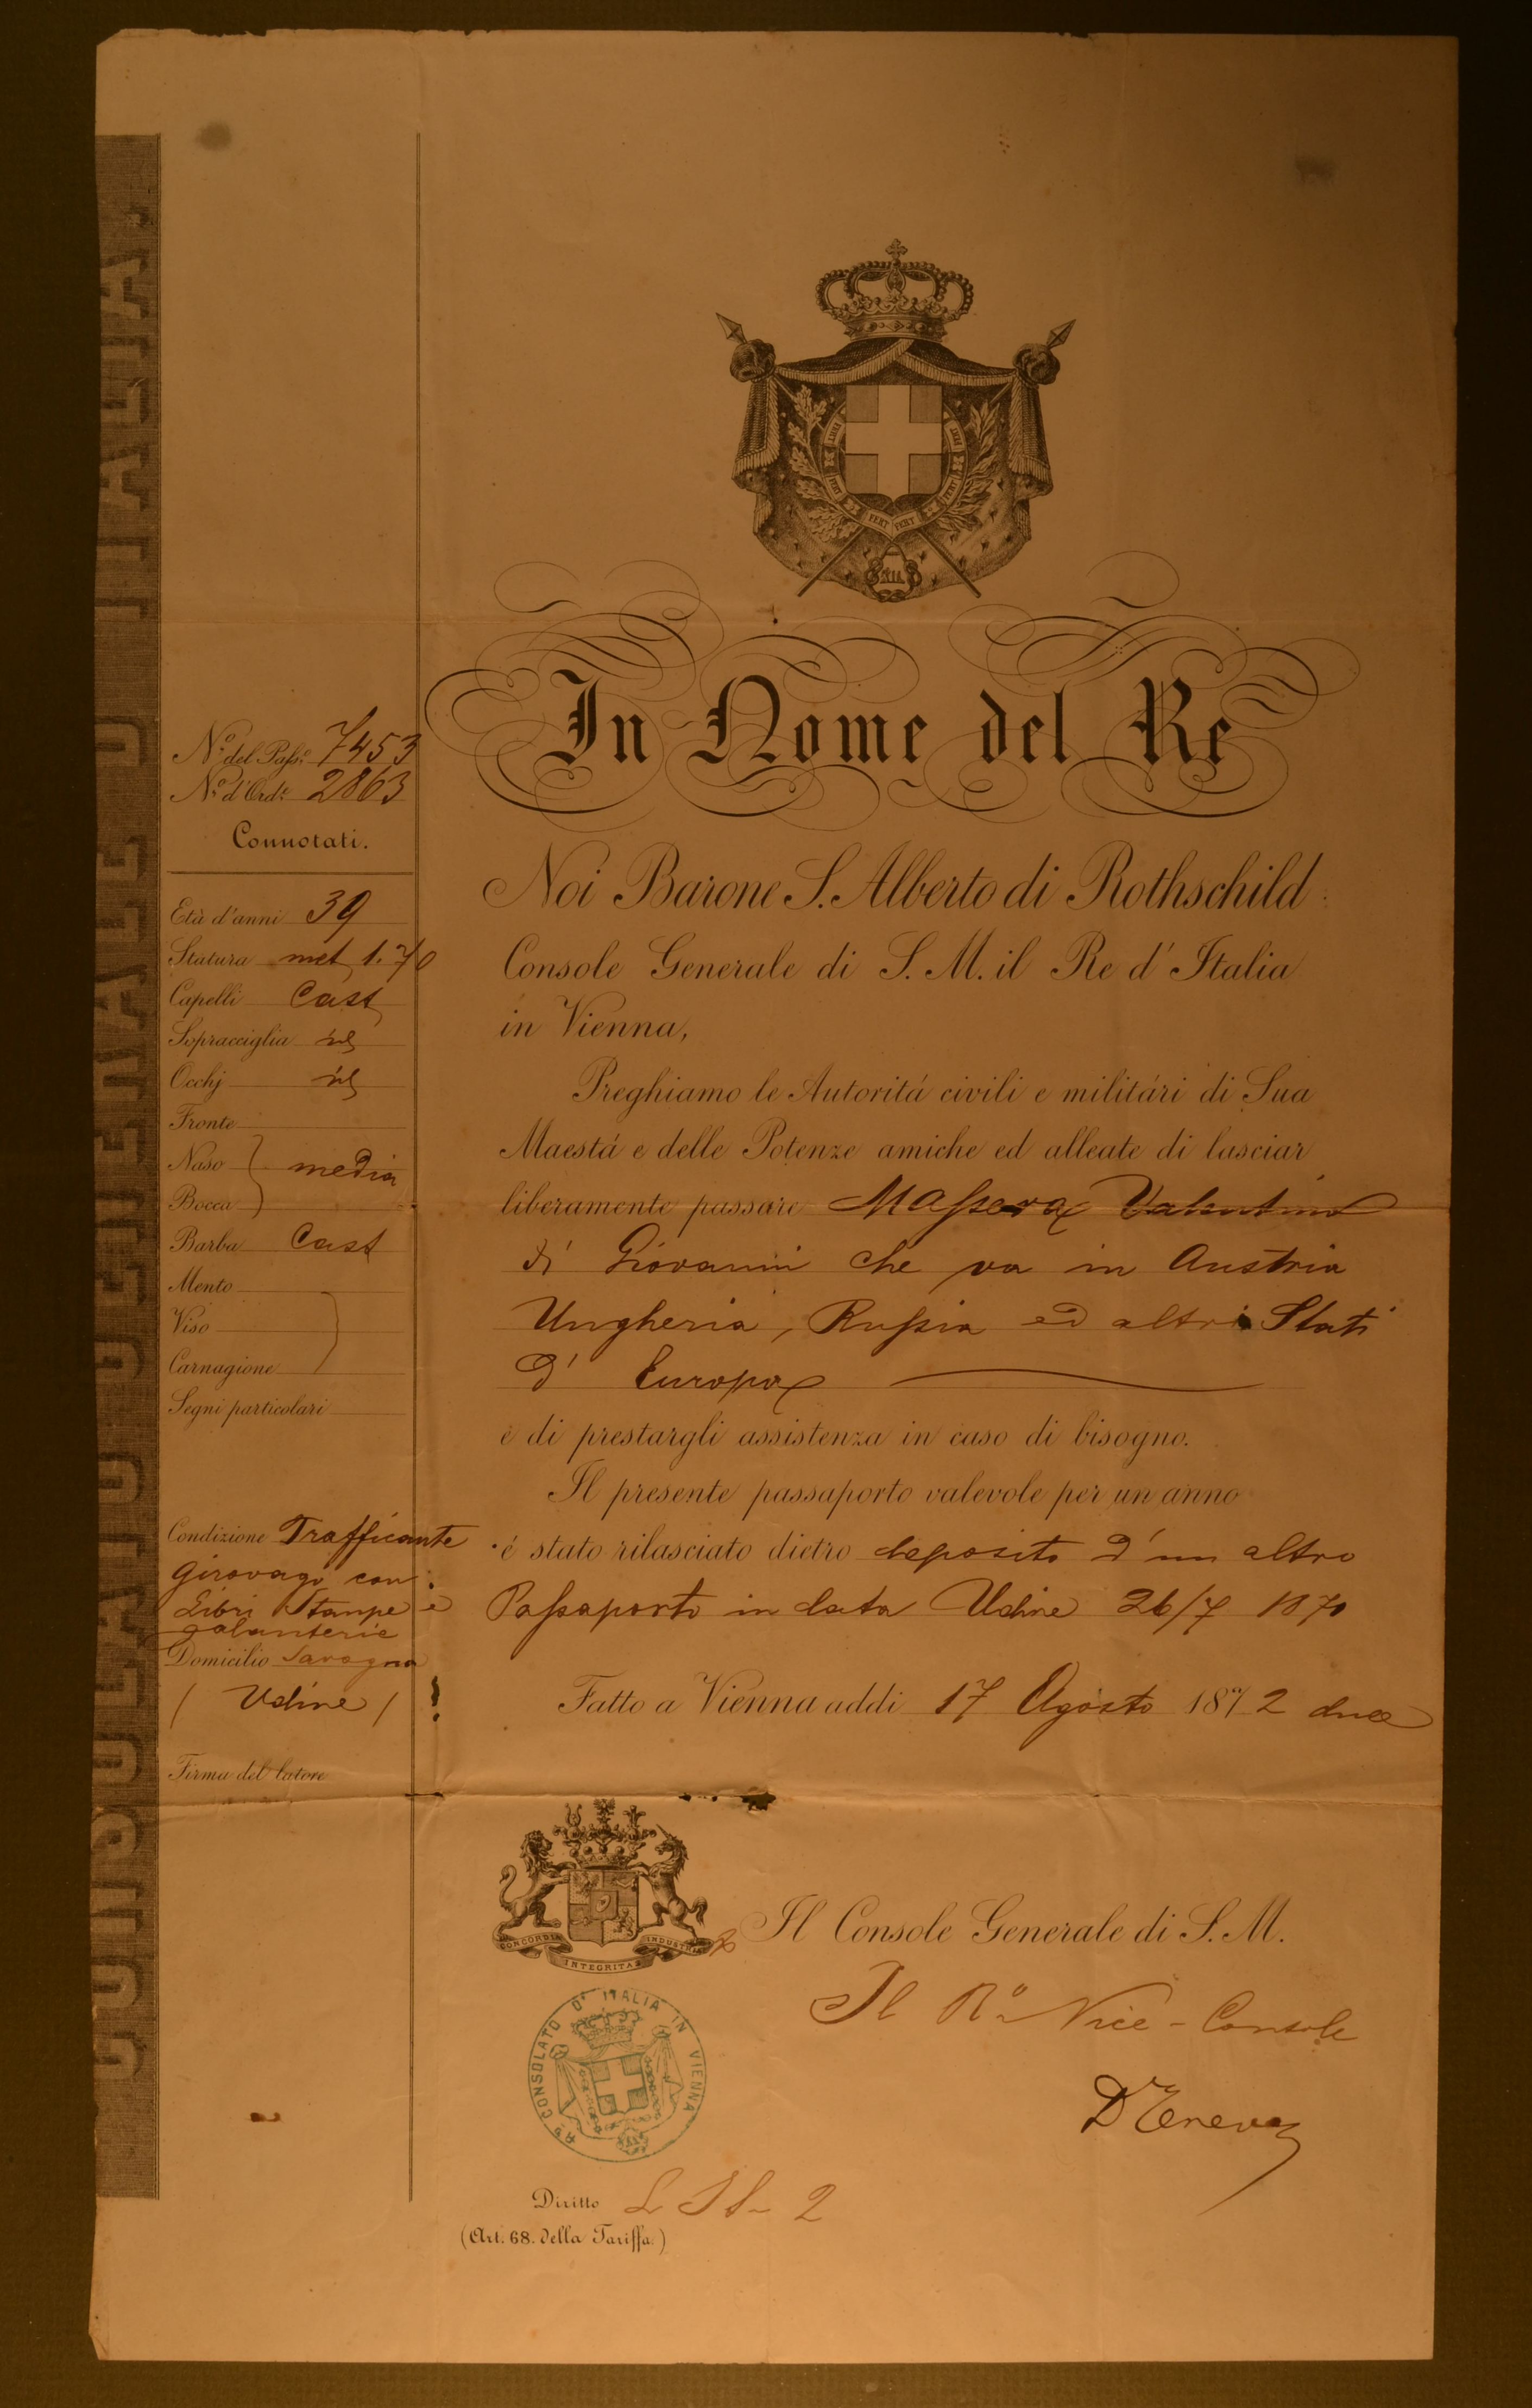 CONSOLATO GENERALE D'ITALIA.
FERT FERT
In Nome del Re
Nº del Passº 7453
Nº d'Ordᵉ 2863
Connotati.
Età d'anni 39
Statura met 1.70
Capelli Cast
Sopracciglia id
Occhj id
Fronte
Naso
Bocca
media
Barba Cast
Mento
Viso
Carnagione
Segni particolari
Condizione Trafficante
girovago con
Libri Stampe e
galanterie
Domicilio Savogna
( Udine )
Firma del latore
Noi Barone S. Alberto di Rothschild
Console Generale di S. M. il Re d'Italia
in Vienna,
Preghiamo le Autoritá civili e militári di Sua
Maestá e delle Potenze amiche ed alleate di lasciar
liberamente passare Massera Valentino
di Giovanni che va in Austria
Ungheria, Russia ed altri Stati
d' Europa
e di prestargli assistenza in caso di bisogno.
Il presente passaporto valevole per un anno
é stato rilasciato dietro deposito d'un altro
Passaporto in data Udine 26/7 1870
Fatto a Vienna addi 17 Agosto 1872 due
CONCORDIA INTEGRITAS INDUSTRIA
Il Console Generale di S. M.
Il Rº Vice-Console
Rº CONSOLATO D' ITALIA IN VIENNA
Diritto L 2
(Art. 68. della Tariffa.)